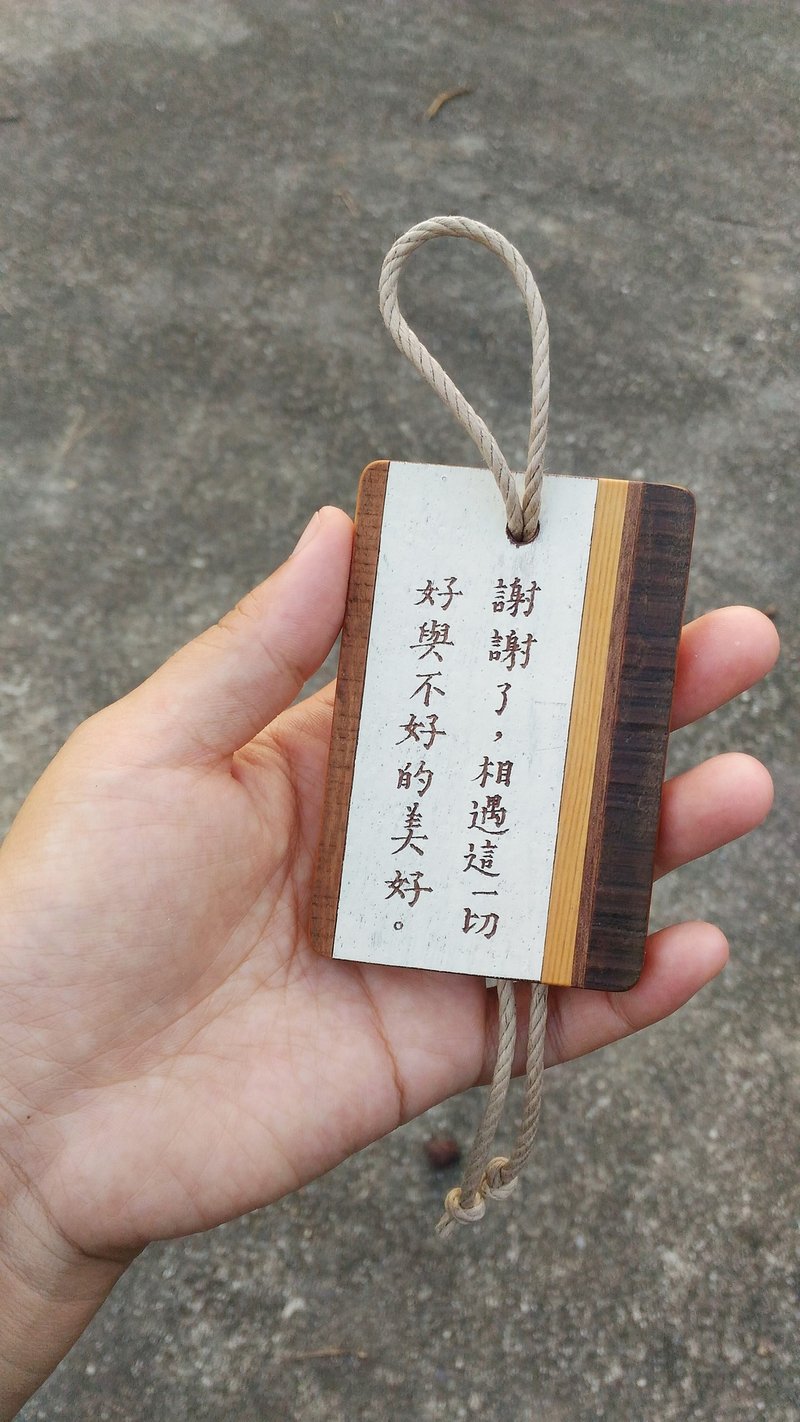 謝謝了，相遇這一切
好與不好的美好。